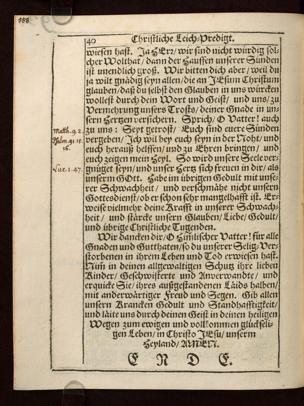 188
40 Christliche Leich-Predigt.
wiesen hast. Ja HErr/ wir sind nicht würdig sol-
cher Wolthat/ dann der Hauffen unserer Sünden
ist unendlich groß. Wir bitten dich aber/ weil du
ja wilt gnädig seyn allen/ die an JEsum Christum
glauben/ daß du selbst den Glauben in uns würcken
wollest durch dein Wort und Geist/ und uns/ zu
Vermehrung unsers Trosts/ deiner Gnade in un-
sern Hertzen versichern. Sprich/ O Vatter! auch
Matth. 9. 2. zu uns: Seyt getrost/ Euch sind euere Sünden
vergeben/ Ich wil bey euch seyn in der Noht/ und
euch herauß helffen/ und zu Ehren bringen/ und
euch zeigen mein Heyl. So wird unsere Seele ver-
Luc. 1. 47. gnüget seyn/ und unser Hertz sich freuen in dir/ als
unserm GOtt. Habe im übrigen Gedult mit unse-
rer Schwachheit/ und verschmähe nicht unsern
Gottesdienst/ ob er schon sehr mangelhafft ist. Er-
weise vielmehr deine Krafft in unserer Schwach-
heit/ und stärcke unsern Glauben/ Liebe/ Gedult/
und übrige Christliche Tugenden.
Wir dancken dir/ O Himlischer Vatter! für alle
Gnaden und Gutthaten/ so du unserer Selig-Ver-
storbenen in ihrem Leben und Tod erwiesen hast.
Nim in deinen allgewaltigen Schutz ihre lieben
Kinder/ Geschwisterte und Anverwandte/ und
erquicke Sie/ ihres außgestandenen Läids halben/
mit anderwärtiger Freud und Segen. Gib allen
unsern Krancken Gedult und Standhafftigkeit/
und läite uns durch deinen Geist in deinen heiligen
Wegen zum ewigen und vollkommen glückseli-
gen Leben/ in Christo JEsu/ unserm
Heyland/ AMEN.
E N D E.